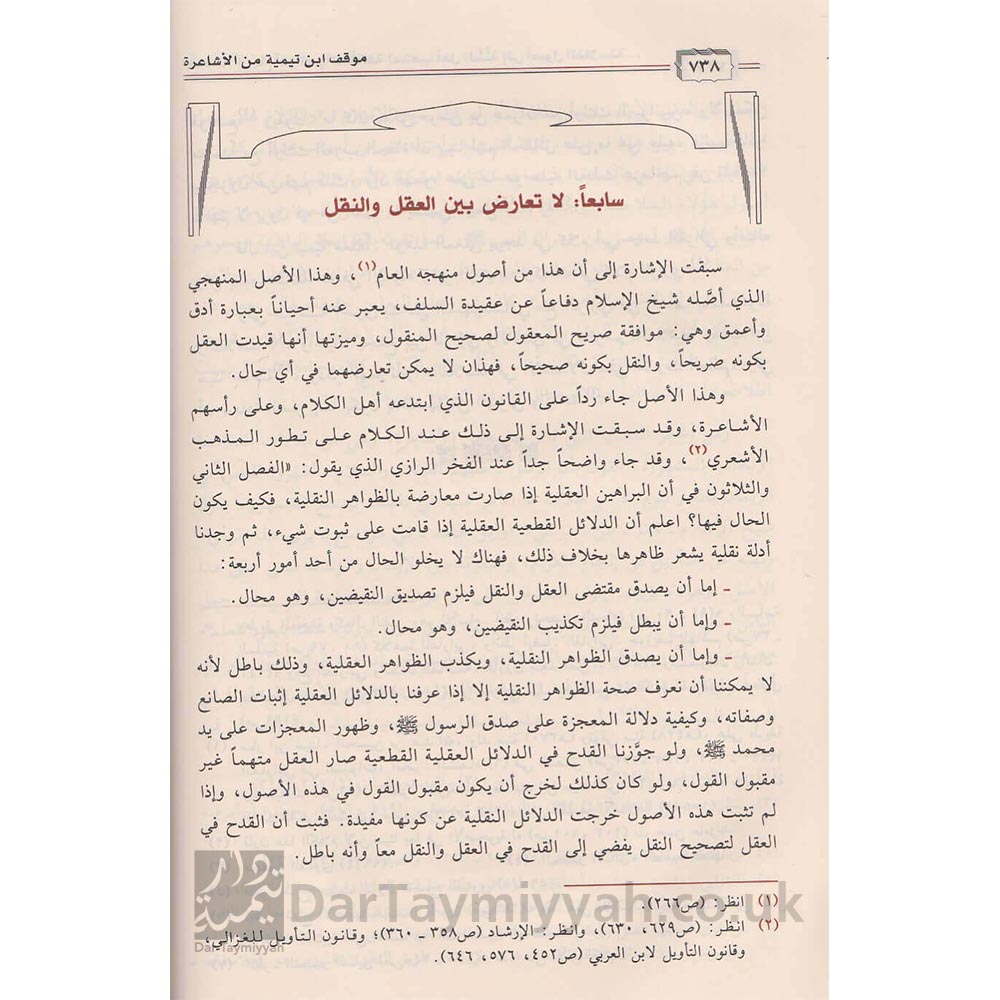 ٧٣٨ موقف ابن تيمية من الأشاعرة
سابعاً: لا تعارض بين العقل والنقل
سبقت الإشارة إلى أن هذا من أصول منهجه العام(١)، وهذا الأصل المنهجي
الذي أصَّله شيخ الإسلام دفاعاً عن عقيدة السلف، يعبر عنه أحياناً بعبارة أدق
وأعمق وهي: موافقة صريح المعقول لصحيح المنقول، وميزتها أنها قيدت العقل
بكونه صريحاً، والنقل بكونه صحيحاً، فهذان لا يمكن تعارضهما في أي حال.
وهذا الأصل جاء رداً على القانون الذي ابتدعه أهل الكلام، وعلى رأسهم
الأشاعرة، وقد سبقت الإشارة إلى ذلك عند الكلام على تطور المذهب
الأشعري(٢)، وقد جاء واضحاً جداً عند الفخر الرازي الذي يقول: «الفصل الثاني
والثلاثون في أن البراهين العقلية إذا صارت معارضة بالظواهر النقلية، فكيف يكون
الحال فيها؟ اعلم أن الدلائل القطعية العقلية إذا قامت على ثبوت شيء، ثم وجدنا
أدلة نقلية يشعر ظاهرها بخلاف ذلك، فهناك لا يخلو الحال من أحد أمور أربعة:
ـ إما أن يصدق مقتضى العقل والنقل فيلزم تصديق النقيضين، وهو محال.
ـ وإما أن يبطل فيلزم تكذيب النقيضين، وهو محال.
ـ وإما أن يصدق الظواهر النقلية، ويكذب الظواهر العقلية، وذلك باطل لأنه
لا يمكننا أن نعرف صحة الظواهر النقلية إلا إذا عرفنا بالدلائل العقلية إثبات الصانع
وصفاته، وكيفية دلالة المعجزة على صدق الرسول ﷺ، وظهور المعجزات على يد
محمد ﷺ، ولو جوَّزنا القدح في الدلائل العقلية القطعية صار العقل متهماً غير
مقبول القول، ولو كان كذلك لخرج أن يكون مقبول القول في هذه الأصول، وإذا
لم تثبت هذه الأصول خرجت الدلائل النقلية عن كونها مفيدة. فثبت أن القدح في
العقل لتصحيح النقل يفضي إلى القدح في العقل والنقل معاً وأنه باطل.
(١) انظر: (ص٢٦٦).
(٢) انظر: (ص٦٢٩، ٦٣٠)، وانظر: الإرشاد (ص٣٥٨ ـ ٣٦٠)؛ وقانون التأويل للغزالي،
وقانون التأويل لابن العربي (ص٤٥٢، ٥٧٦، ٦٤٦).
دار تيمية
Dar-Taymiyyah
DarTaymiyyah.co.uk